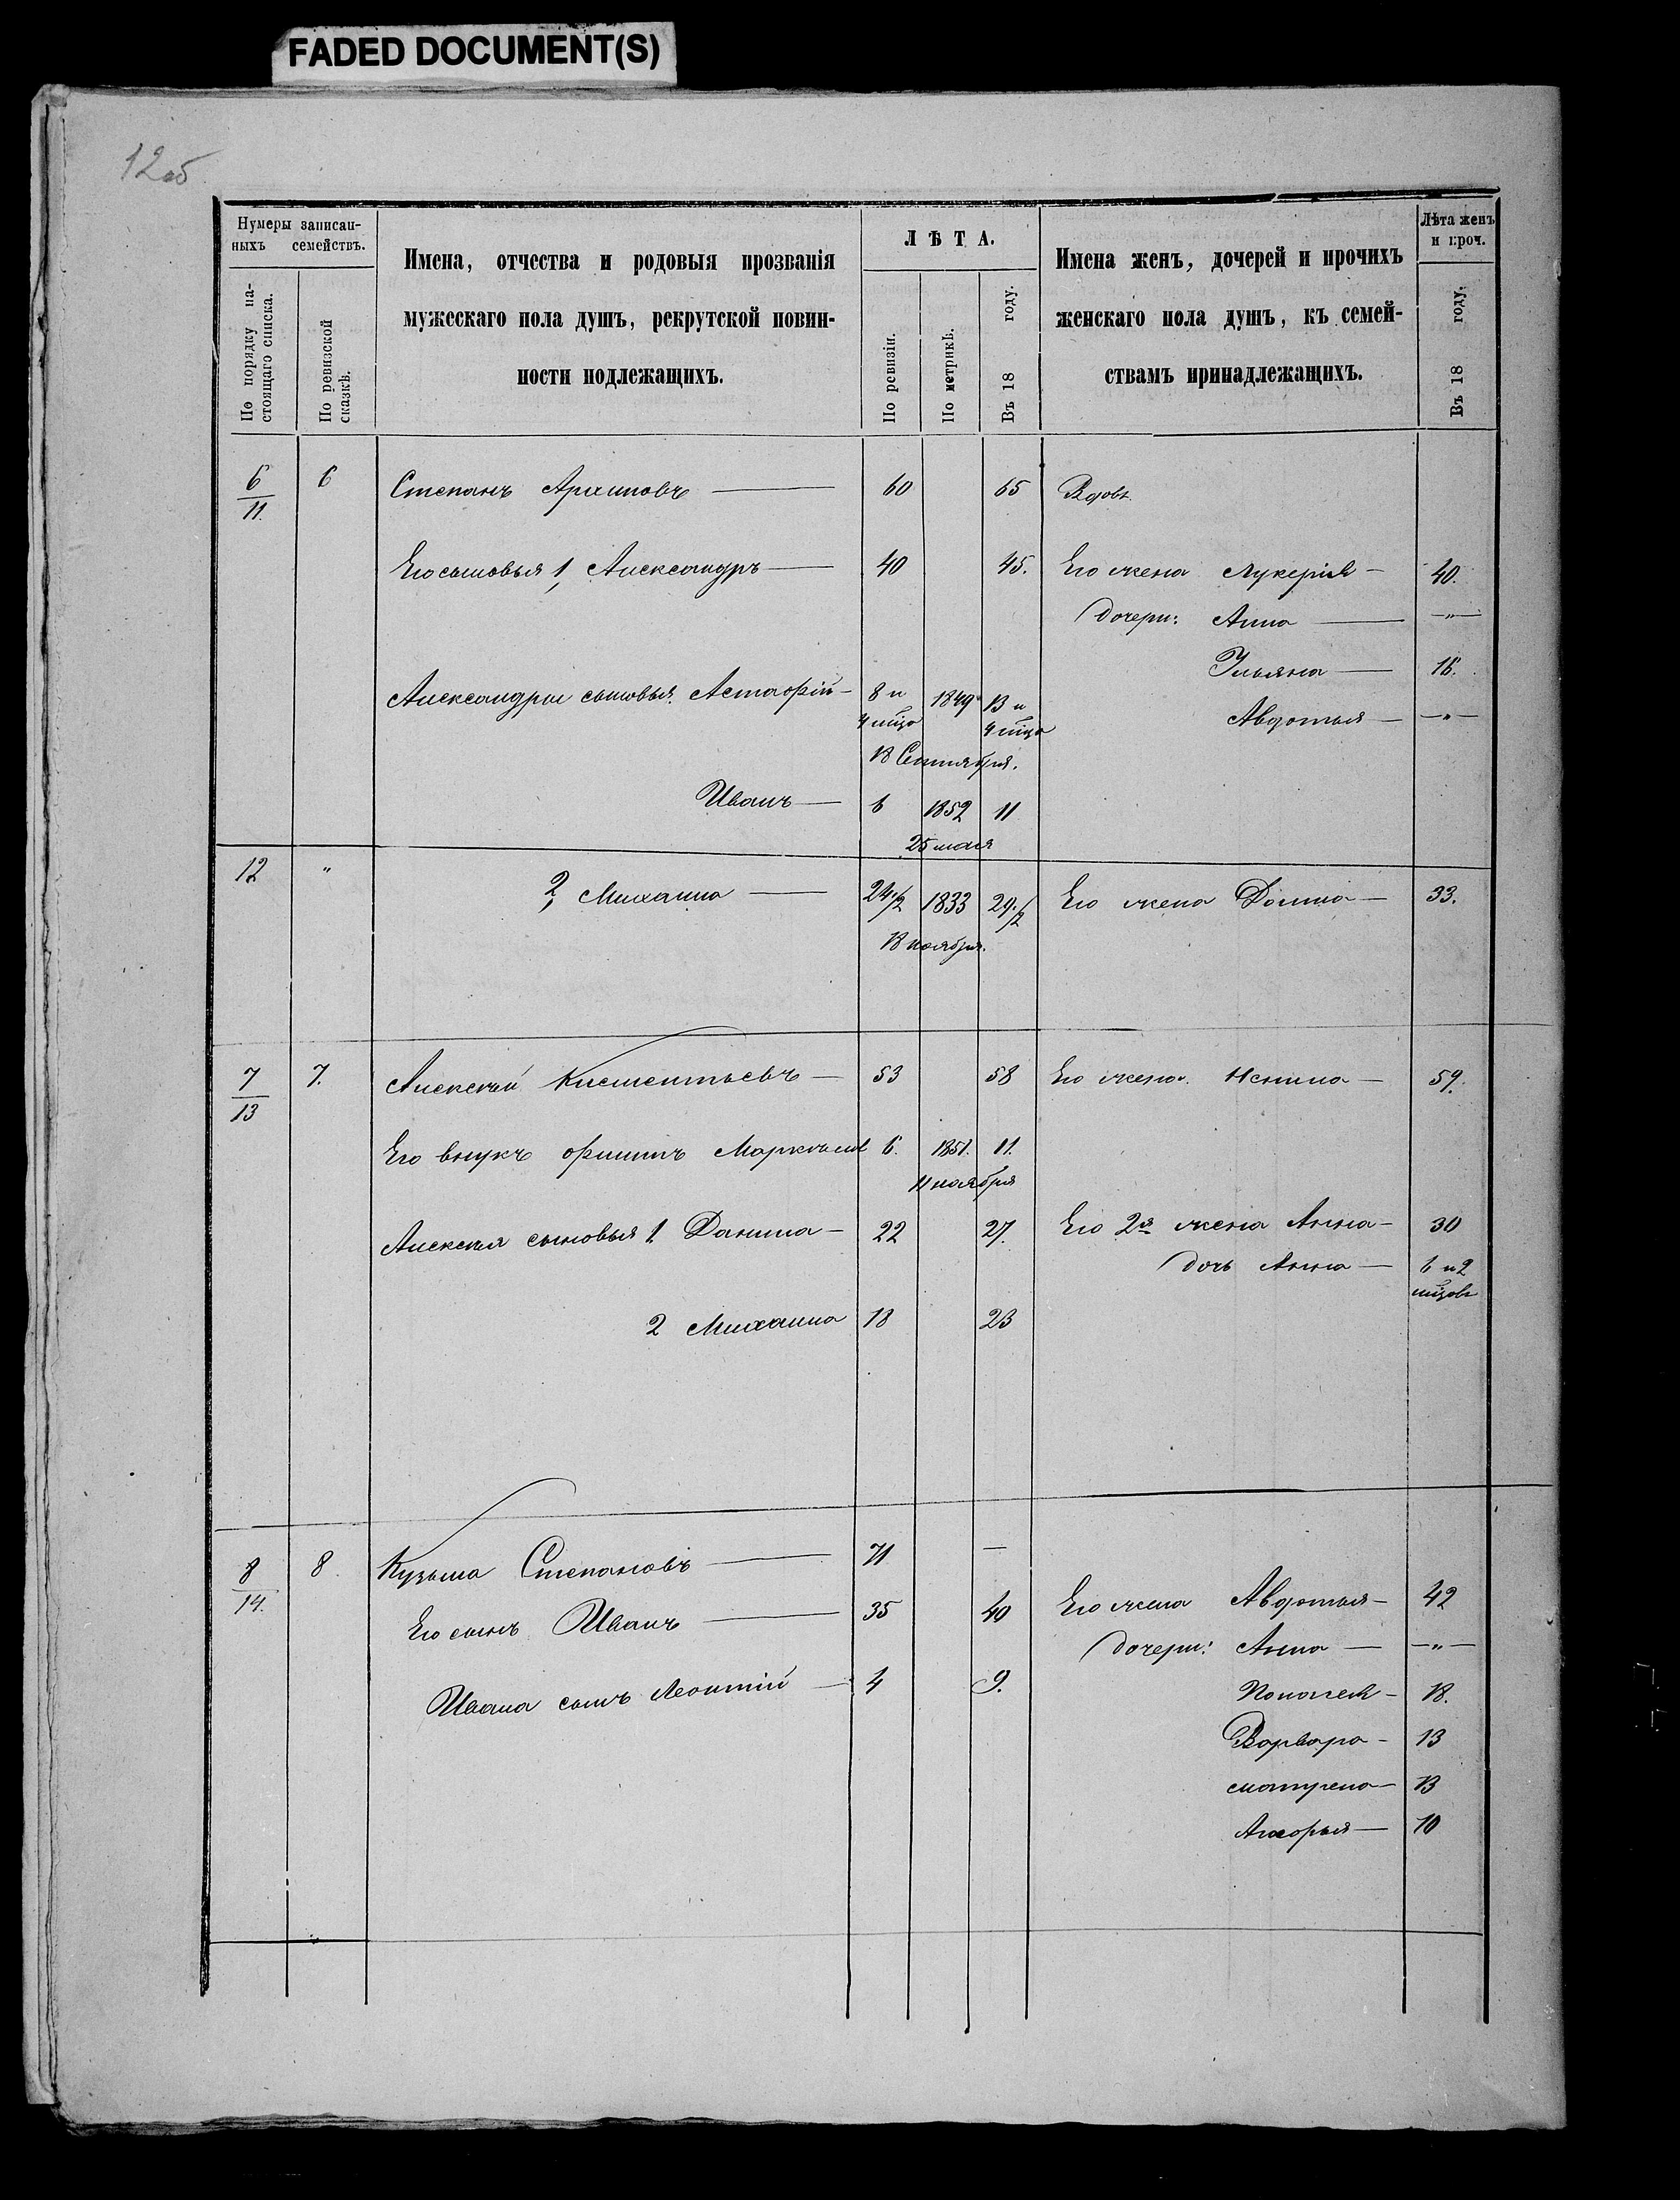 FADED DOCUMENT(S)
12об
Нумеры записан-
ныхъ семействъ.
По порядку на-
стоящаго списка.
По ревизской
сказкѣ.
Имена, отчества и родовыя прозванія
мужескаго пола душъ, рекрутской повин-
ности подлежащихъ.
ЛѢТА.
По ревизіи.
По метрикѣ.
Въ 18 году.
Имена женъ, дочерей и прочихъ
женскаго пола душъ, къ семей-
ствамъ принадлежащихъ.
Лѣта женъ
и проч.
Въ 18 году.
6/11. 6 Степанъ Архиповъ — 60 65 Вдовъ
Его сыновья 1, Александръ — 40 45. Его жена Лукерія — 40.
Дочери: Анна — —„—
Ульяна — 16.
Александры сыновья: Астафій — 8 и 1849 13 и
4 мцо 4 мцо
Авдотья — —„—
18 Сентября.
Иванъ — 6 1852 11
25 мая
12 „ 2, Михаила — 24 1/2 1833 29 1/2 Его жена Домна — 33.
18 ноября.
7/13 7. Алексѣй Климентьевъ — 53 58 Его жена 59.
Его внукъ Филипъ 6. 1851. 11.
11 ноября
Алексѣя сыновья 1 Данила — 22 27. Его 2я жена Анна — 30
дочь Анна — 6 и 2
мцовъ
2 Михаила 18 23
8/14. 8. Кузьма Степановъ — 71 —
Его сынъ Иванъ — 35 40 Его жена Авдотья — 42
Дочери: Анна — —„—
Ивана сынъ Леонтій — 4 9. Пелагея — 18.
Варвара — 13
Матрена — 13
10